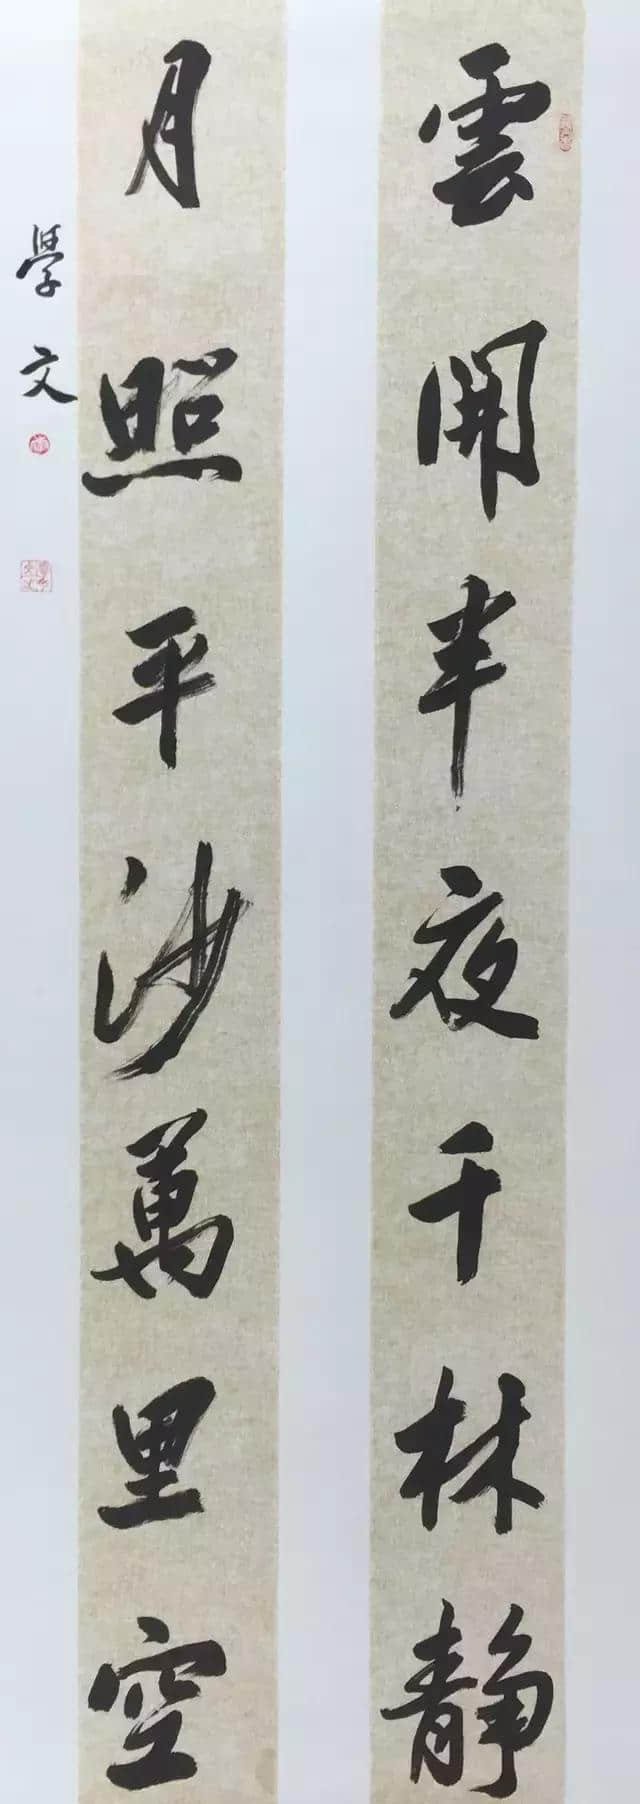 雲開半夜千林静
月照平沙萬里空
學文